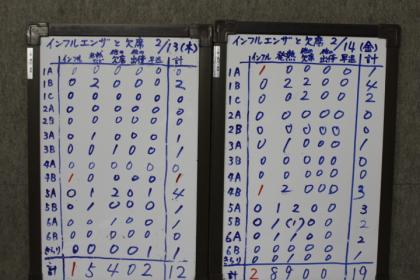 インフルエンザと欠席 2/13(木)
インフル 発熱 他の欠席 他の出停 早退 計
1A 0 0 0 0 0 0
1B 0 2 0 0 0 2
1C 0 0 0 0 0 0
2A 0 0 0 0 0 0
2B 0 0 0 0 0 0
3A 0 1 0 0 0 1
3B 0 0 1 0 0 1
4A 0 0 0 0 0 0
4B 1 0 0 0 0 1
5A 0 1 2 0 1 4
5B 0 0 0 0 0 0
6A 0 1 0 0 0 1
6B 0 0 1 0 0 1
きらり 0 0 0 0 1 1
計 1 5 4 0 2 12
インフルエンザと欠席 2/14(金)
インフル 発熱 他の欠席 他の出停 早退 計
1A 1 0 0 0 0 1
1B 0 2 2 0 0 4
1C 0 0 2 0 0 2
2A 0 0 0 0 0 0
2B 0 0 0 0 0 0
3A 0 1 0 0 0 1
3B 0 0 1 0 0 1
4A 0 0 0 0 0 0
4B 1 2 0 0 0 3
5A 0 1 2 0 0 3
5B 0 1 0 0 2
6A 0 1 1 0 0 2
6B 0 1 0 0 0 1
きらり 0 0 0 0 0
計 2 8 9 0 0 19